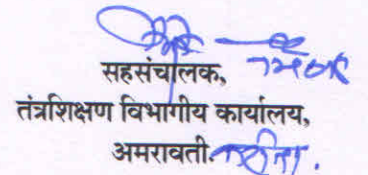 सहसंचालक,
तंत्रशिक्षण विभागीय कार्यालय,
अमरावती.करीता.